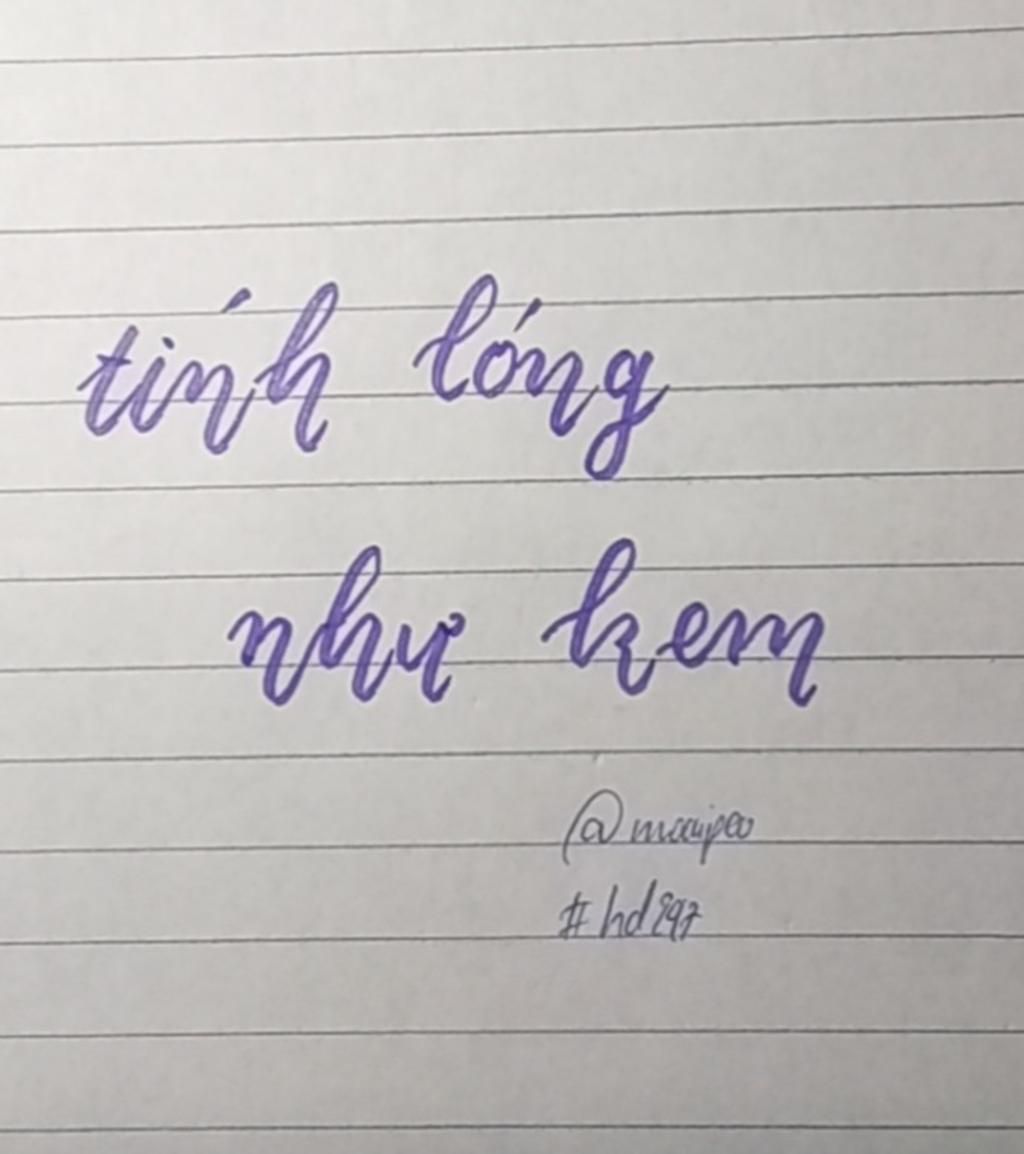 tính lóng
như kem
@maiipeo
#hd297